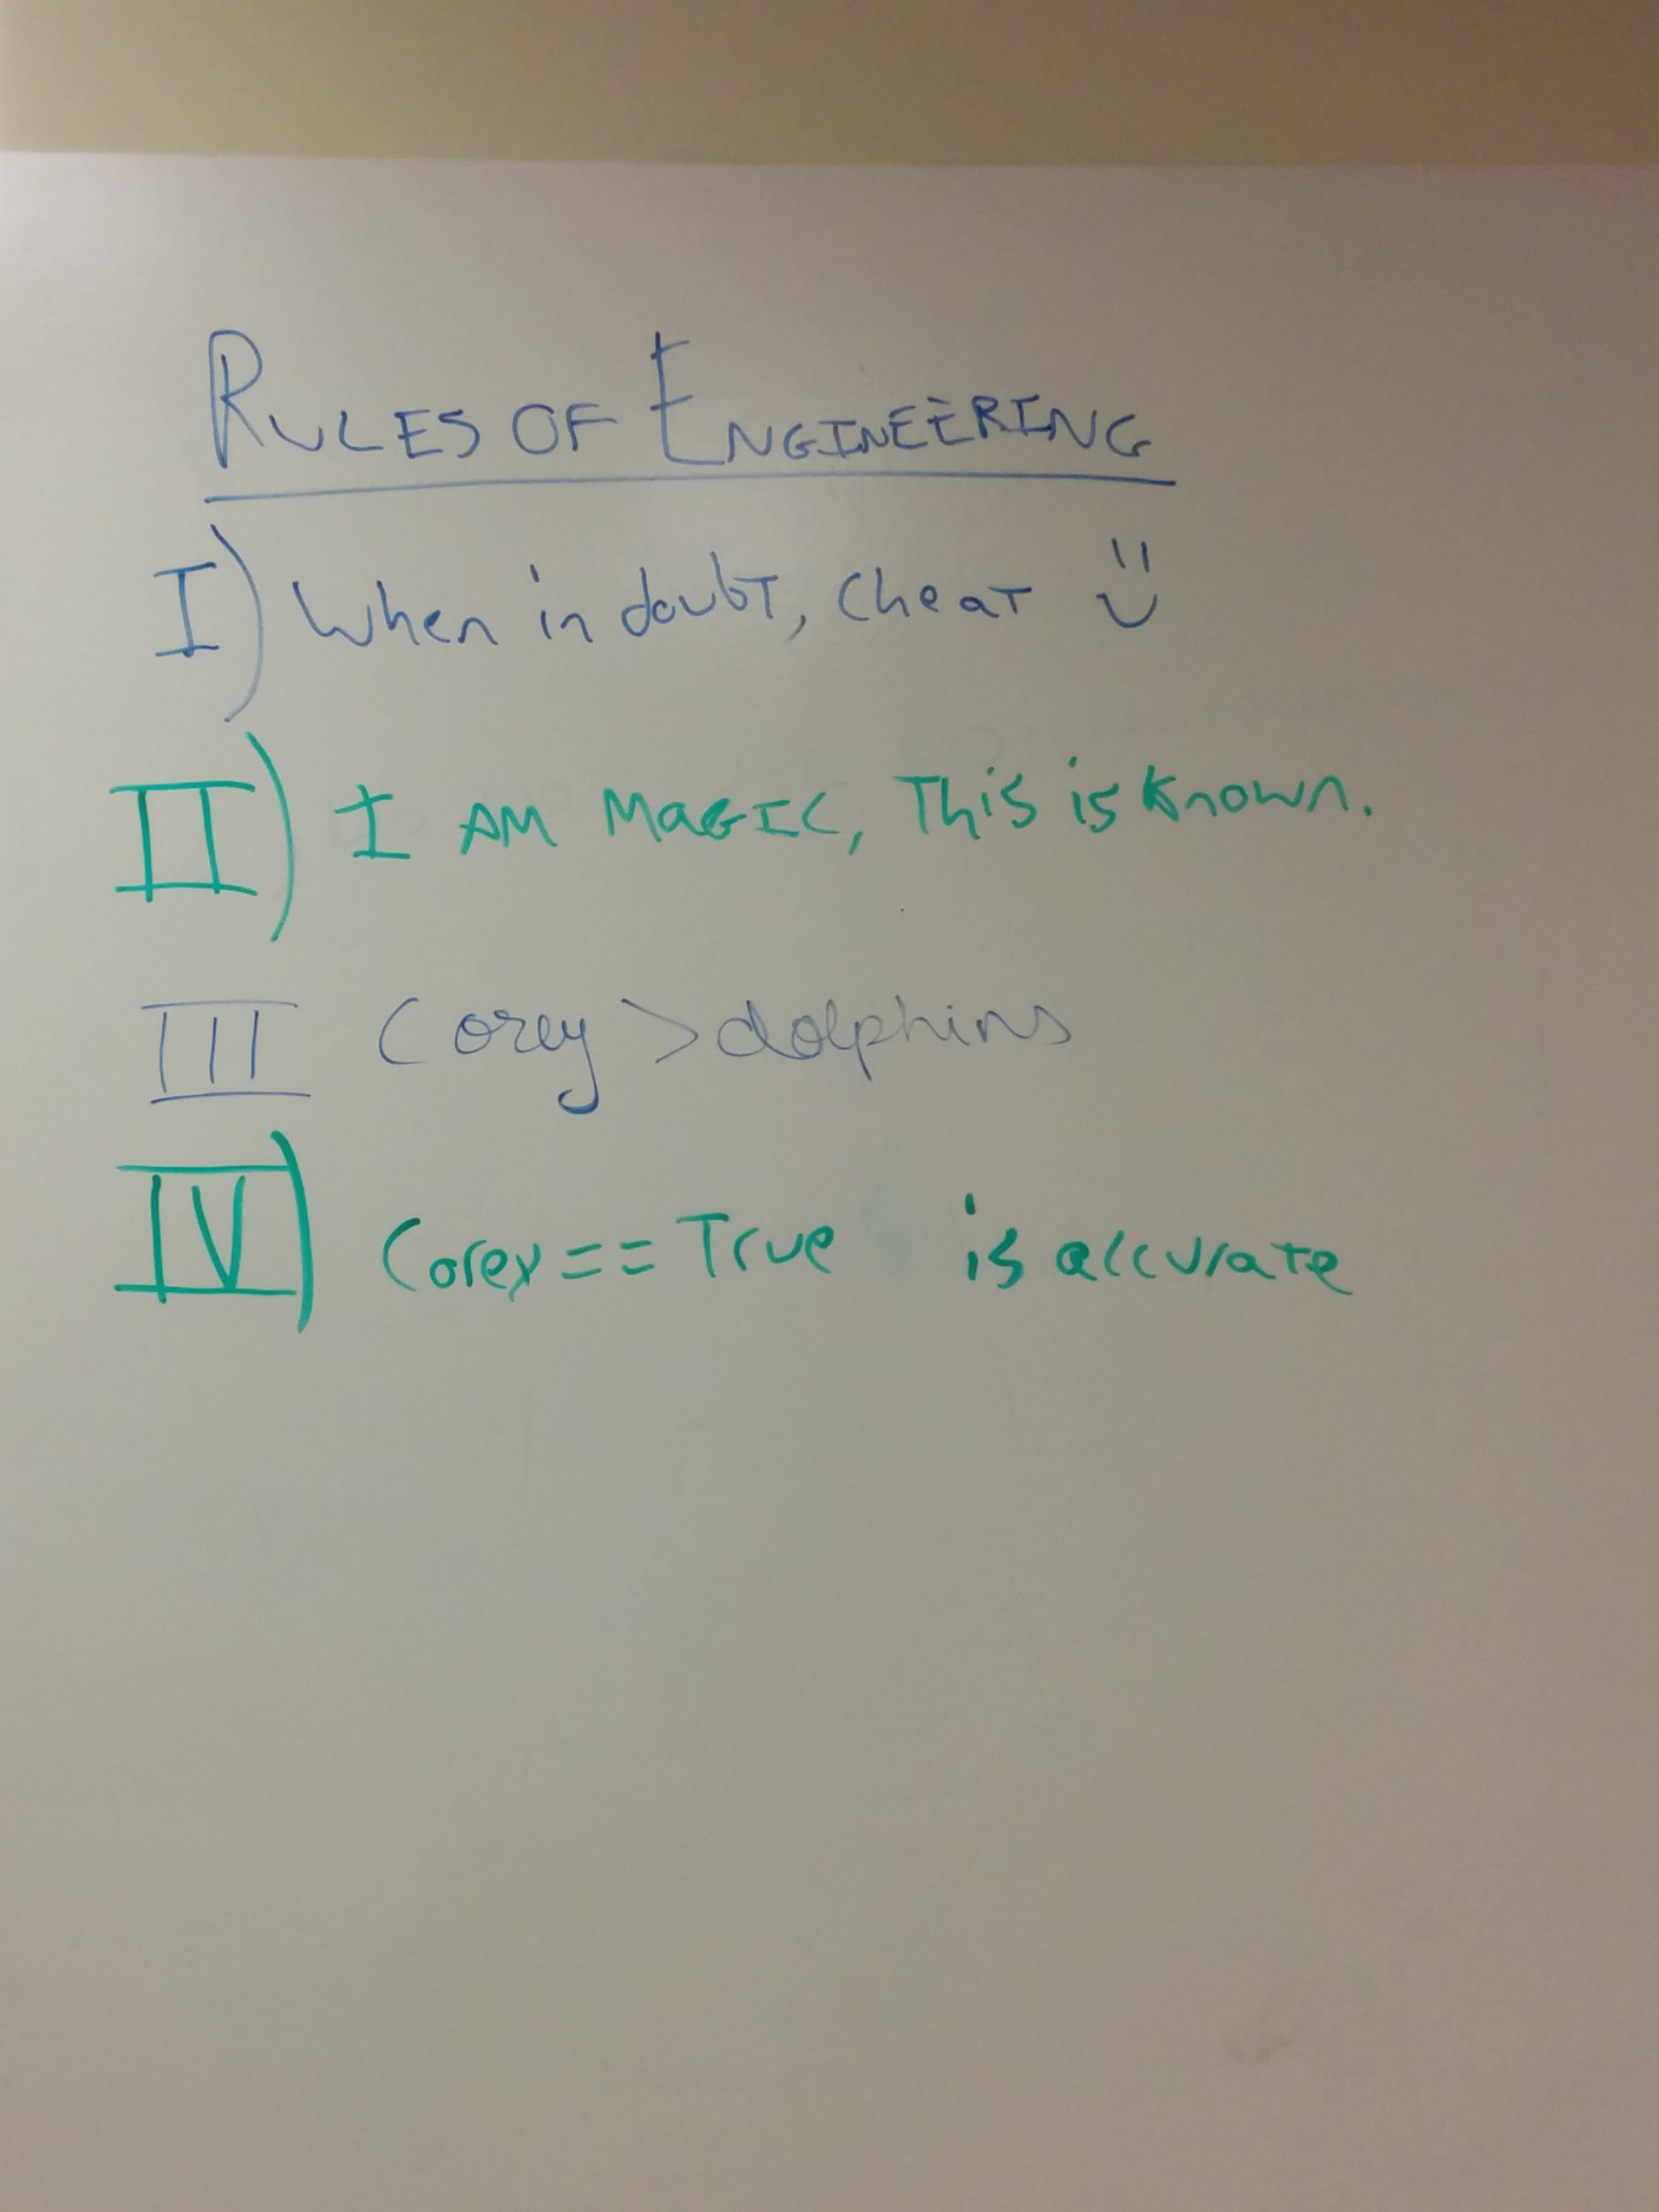 RULES OF ENGINEERING
I) When in doubt, cheat
II) I AM MAGIC, This is known.
III Corey > dolphins
IV) Corey == True is accurate